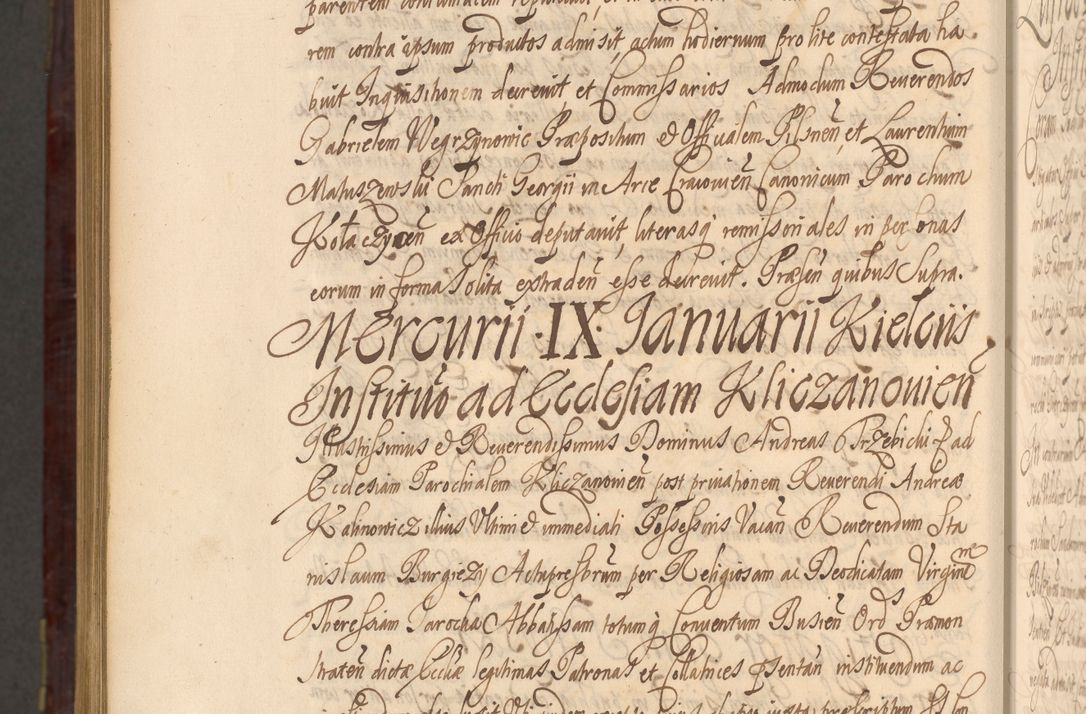 rem contra ipsum productos admisit, actum hodiernum pro lite contestata ha
buit Inquisitionem decrevit, et Commissarios Admodum Reverendos
Gabrielem Węgrzynowic Præpositum & Officialem Pilsneñ, et Laurentium
Matuszewski Sancti Georgii in Arce Cracovieñ Canonicum Parochum
Kołaczyceñ ex Officio deputavit, literasq remissoriales in personas
eorum in forma solita extradeñ esse decrevit. Præseñ quibus supra.
Mercurii IX Ianuarii Kielciis
Institutio ad Ecclesiam Kliczanovieñ
Illustrissimus & Reverendissimus Dominus Andreas Trzebicki ad
Ecclesiam Parochialem Kliczanovieñ post privationem Reverendi Andreæ
Kalinowicz illius Ultimi & immediati Possessoris Vacañ Reverendum Sta
nislaum Burgiezy Actupresbrum per Religiosam ac Deodicatam Virginẽ
Theressiam Parocha Abbatissam totumq Conventum Busieñ Ords Præmon
strateñ dictæ Eccliæ legitimas Patronas et Collatrices pñsentañ instituendum ac